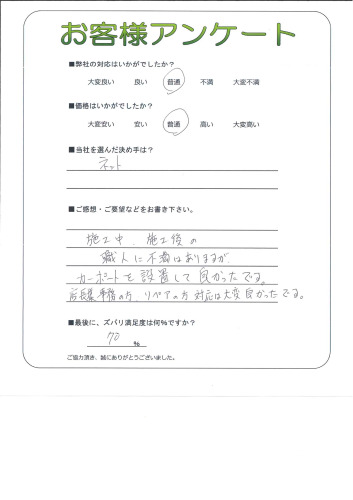 お客様アンケート
■弊社の対応はいかがでしたか?
大変良い 良い 普通 不満 大変不満
■価格はいかがでしたか?
大変安い 安い 普通 高い 大変高い
■当社を選んだ決め手は?
ネット
■ご感想・ご要望などをお書き下さい。
施工中、施工後の
職人に不満はありますが、
カーポートを設置して良かったでる。
店長様 事務の方 リペアの方 対応は大変良かったでる。
■最後に、ズバリ満足度は何%ですか?
70 %
ご協力頂き、誠にありがとうございました。